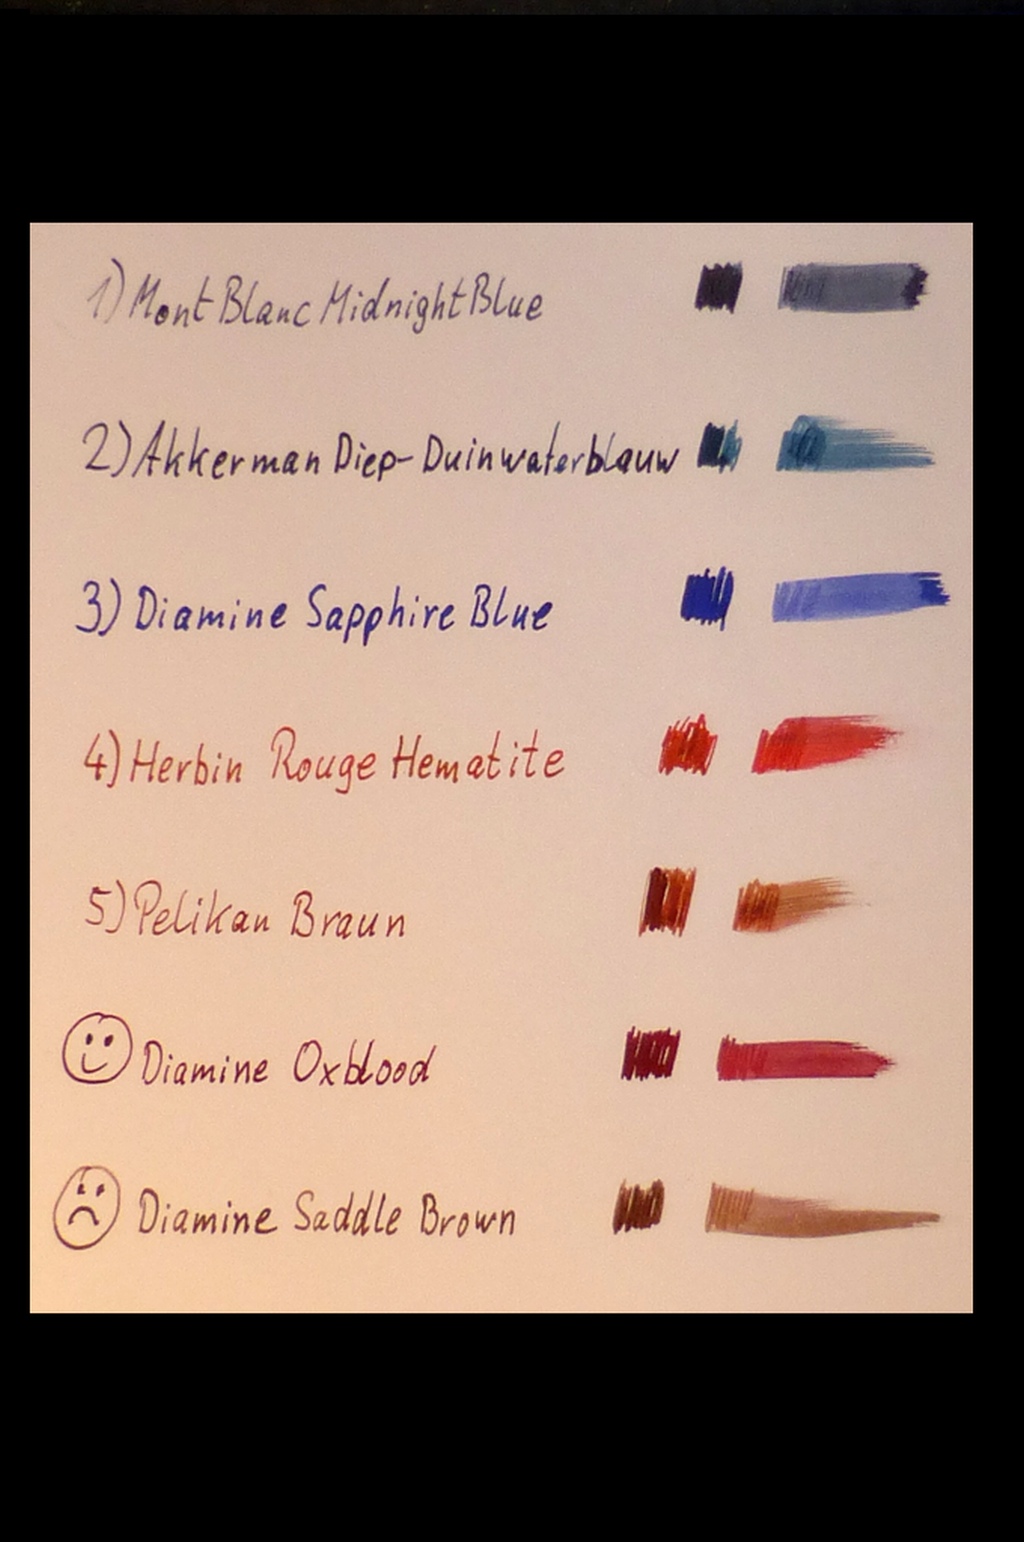 1) Mont Blanc Midnight Blue
2) Akkerman Diep-Duinwaterblauw
3) Diamine Sapphire Blue
4) Herbin Rouge Hematite
5) Pelikan Braun
Diamine Oxblood
Diamine Saddle Brown